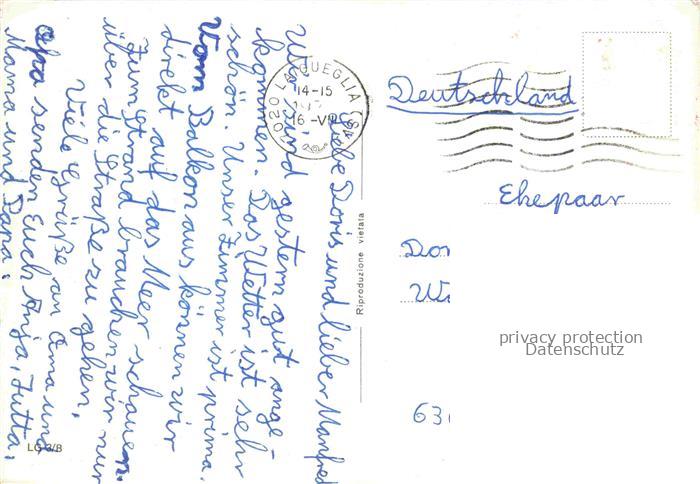 Liebe Doris und lieber Manfred
Wir sind gestern gut ange-
kommen. Das Wetter ist sehr
schön. Unser Zimmer ist prima.
Vom Balkon aus können wir
direkt auf das Meer schauen.
Zum Strand brauchen wir nur
über die Straße zu gehen.
Viele Grüße an Oma und
Opa senden Euch Anja, Jutta,
Mama und Papa.
LG 3/B
Riproduzione vietata
LAIGUEGLIA (SV)
14-15
16-VII
Deutschland
Ehepaar
Dor
Wi
privacy protection
Datenschutz
630